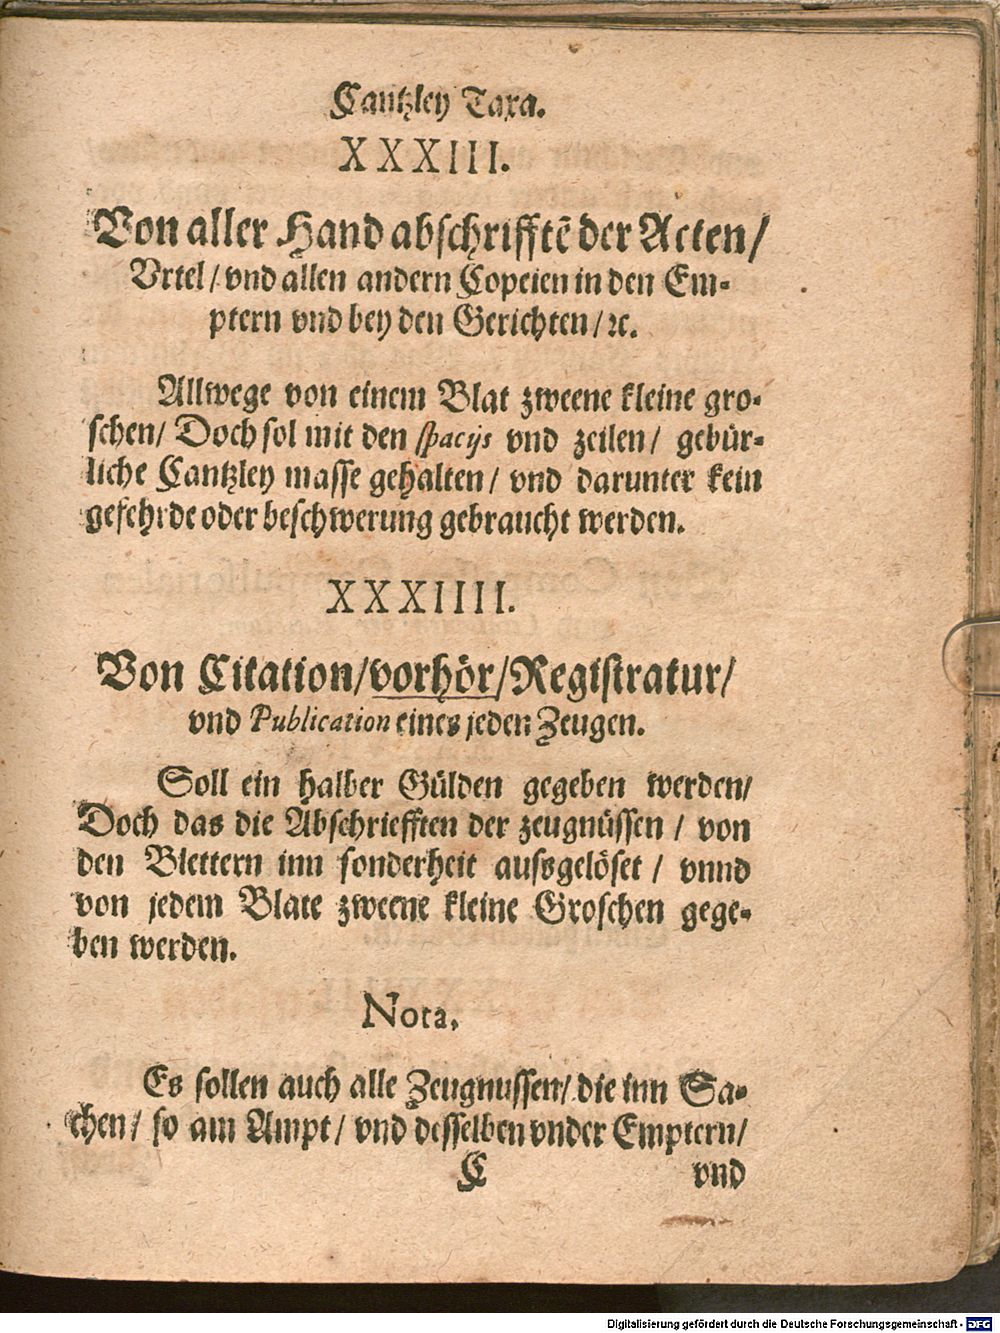 Cantzley Taxa.
XXXIII.
Von aller Hand abschrifftē der Acten/
Vrtel/ vnd allen andern Copeien in den Em-
ptern vnd bey den Gerichten/ ꝛc.
Allwege von einem Blat zweene kleine gro-
schen/ Doch sol mit den spacijs vnd zeilen/ gebür-
liche Cantzley masse gehalten/ vnd darunter kein
gefehrde oder beschwerung gebraucht werden.
XXXIIII.
Von Citation/vorhör/Registratur/
vnd Publication eines jeden Zeugen.
Soll ein halber Gülden gegeben werden/
Doch das die Abschriefften der zeugnüssen / von
den Blettern inn sonderheit aussgelöset / vnnd
von jedem Blate zweene kleine Groschen gege-
ben werden.
Nota.
Es sollen auch alle Zeugnussen/ die inn Sa-
chen/ so am Ampt/ vnd desselben vnder Emptern/
C vnd
Digitalisierung gefördert durch die Deutsche Forschungsgemeinschaft - DFG